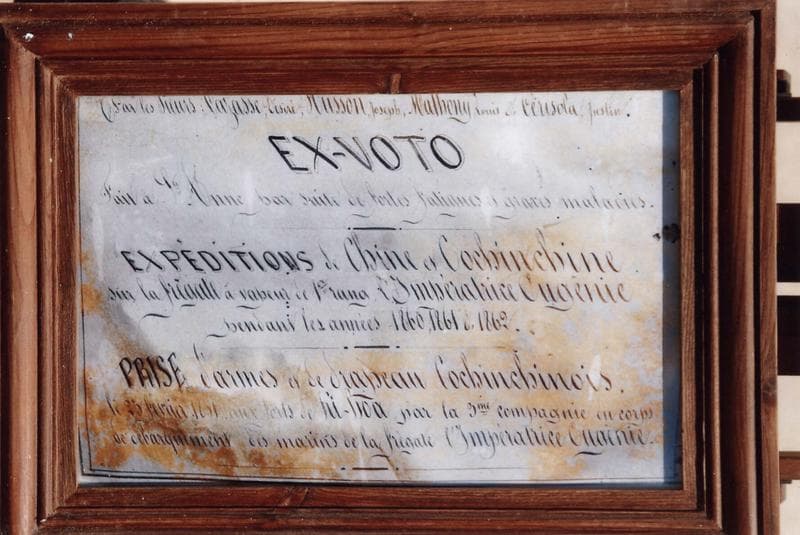 Par les Sieurs Vagasse, César, Husson Joseph, Mathony Louis & Cérisola, Justin.
EX-VOTO
Fait à Ste Anne par suite de fortes fatigues & graves maladies.
EXPÉDITIONS de Chine et Cochinchine
sur la frégate à vapeur de 1er rang l'Impératrice Eugénie
pendant les années 1860, 1861 & 1862.
PRISE d'armes et de drapeau Cochinchinois.
le 25 aux forts de Ki-Hoa par la 3me compagnie en corps
de débarquement des marins de la frégate l'Impératrice Eugénie.